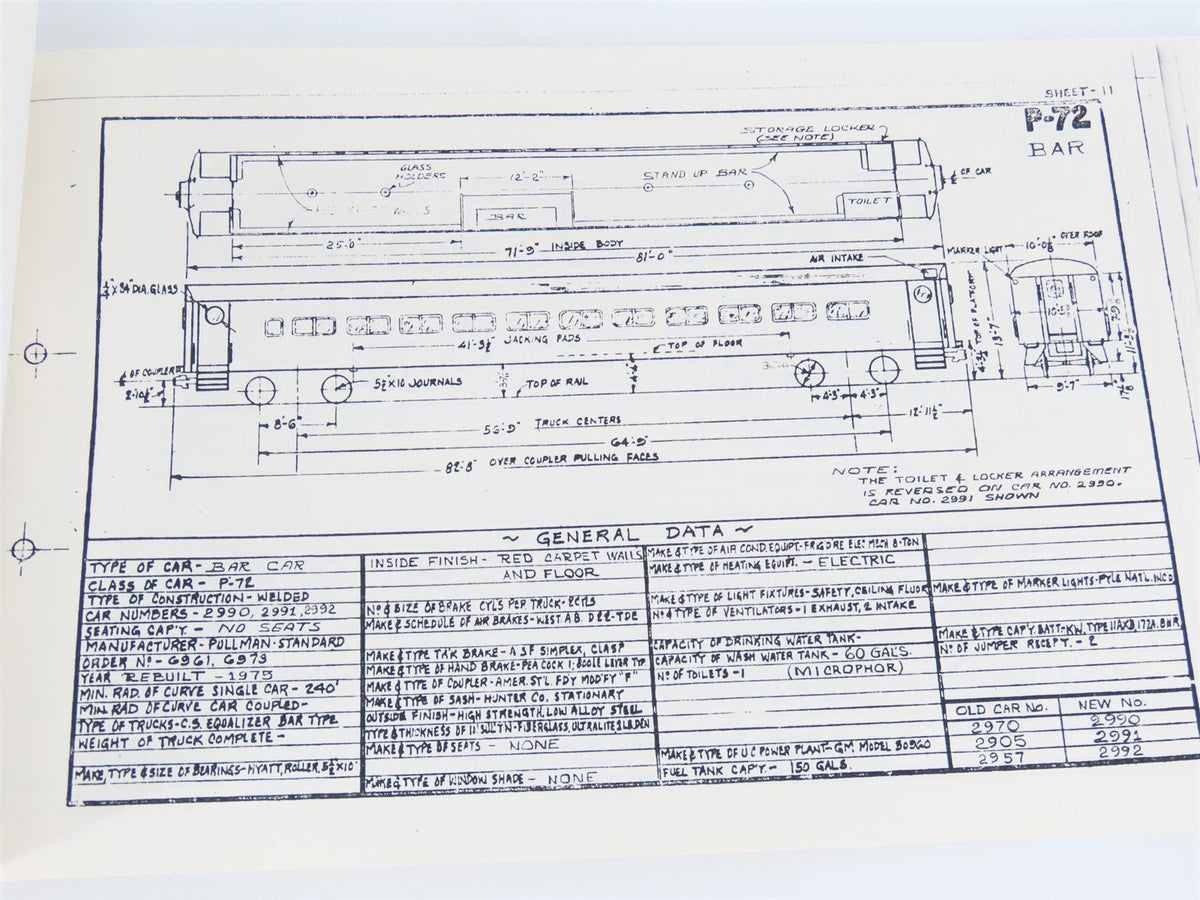 SHEET-11
P-72
BAR
STORAGE LOCKER
(SEE NOTE)
GLASS
HOLDERS
12'-2"
STAND UP BAR
₵ OF CAR
RED CARPET WALLS
BAR
TOILET
25'-0"
71'-9" INSIDE BODY
81'-0"
AIR INTAKE
MARKER LIGHT
10'-0⅛" OVER ROOF
DIA. GLASS
41'-3½" JACKING PADS
TOP OF FLOOR
TOP OF PLATFORM
13'-7"
₵ OF COUPLER
2'-10½"
5½X10 JOURNALS
TOP OF RAIL
9'-7"
8'-6"
4'-3" 4'-3"
12'-11½"
TRUCK CENTERS
64'-9"
82'-8" OVER COUPLER PULLING FACES
NOTE:
THE TOILET & LOCKER ARRANGEMENT
IS REVERSED ON CAR NO. 2990.
CAR NO. 2991 SHOWN
~ GENERAL DATA ~
TYPE OF CAR- BAR CAR
CLASS OF CAR - P-72
TYPE OF CONSTRUCTION- WELDED
CAR NUMBERS - 2990, 2991, 2992
SEATING CAP'Y. - NO SEATS
MANUFACTURER- PULLMAN-STANDARD
ORDER Nº- 6961, 6973
YEAR REBUILT - 1975
MIN. RAD. OF CURVE SINGLE CAR - 240'
MIN RAD OF CURVE CAR COUPLED-
TYPE OF TRUCKS-C.S. EQUALIZER BAR TYPE
WEIGHT OF TRUCK COMPLETE -
MAKE, TYPE & SIZE OF BEARINGS-HYATT, ROLLER, 5½"X10"
INSIDE FINISH- RED CARPET WALLS
AND FLOOR
Nº & SIZE OF BRAKE CYL'S PER TRUCK-
MAKE & SCHEDULE OF AIR BRAKES-WEST. A.B. D22-
MAKE & TYPE T'R'K BRAKE- A S F SIMPLEX, CLASP
MAKE & TYPE OF HAND BRAKE-PEACOCK
MAKE & TYPE OF COUPLER-AMER. ST'L. F'D'Y MOD'F'Y "F"
MAKE & TYPE OF SASH-HUNTER CO. STATIONARY
OUTSIDE FINISH-HIGH STRENGTH, LOW ALLOY STEEL
TYPE & THICKNESS OF INSUL'T'N-FIBERGLASS, ULTRALITE
MAKE & TYPE OF SEATS - NONE
MAKE & TYPE OF WINDOW SHADE - NONE
MAKE & TYPE OF AIR COND. EQUIPT. ELEC MECH 8-TON
MAKE & TYPE OF HEATING EQUIPT. - ELECTRIC
MAKE & TYPE OF LIGHT FIXTURES-SAFETY, CEILING FLUOR
Nº & TYPE OF VENTILATORS-1 EXHAUST, 2 INTAKE
CAPACITY OF DRINKING WATER TANK-
CAPACITY OF WASH WATER TANK - 60 GAL'S.
Nº OF TOILETS -1 (MICROPHOR)
MAKE & TYPE OF U C POWER PLANT-GM MODEL
FUEL TANK CAP'Y. - 150 GALS.
MAKE & TYPE OF MARKER LIGHTS-PYLE NAT'L. INC
MAKE & TYPE CAP'Y. BATT-K.W. TYPE
Nº OF JUMPER RECEPT. - 2
OLD CAR No. NEW No.
2970 2990
2905 2991
2957 2992